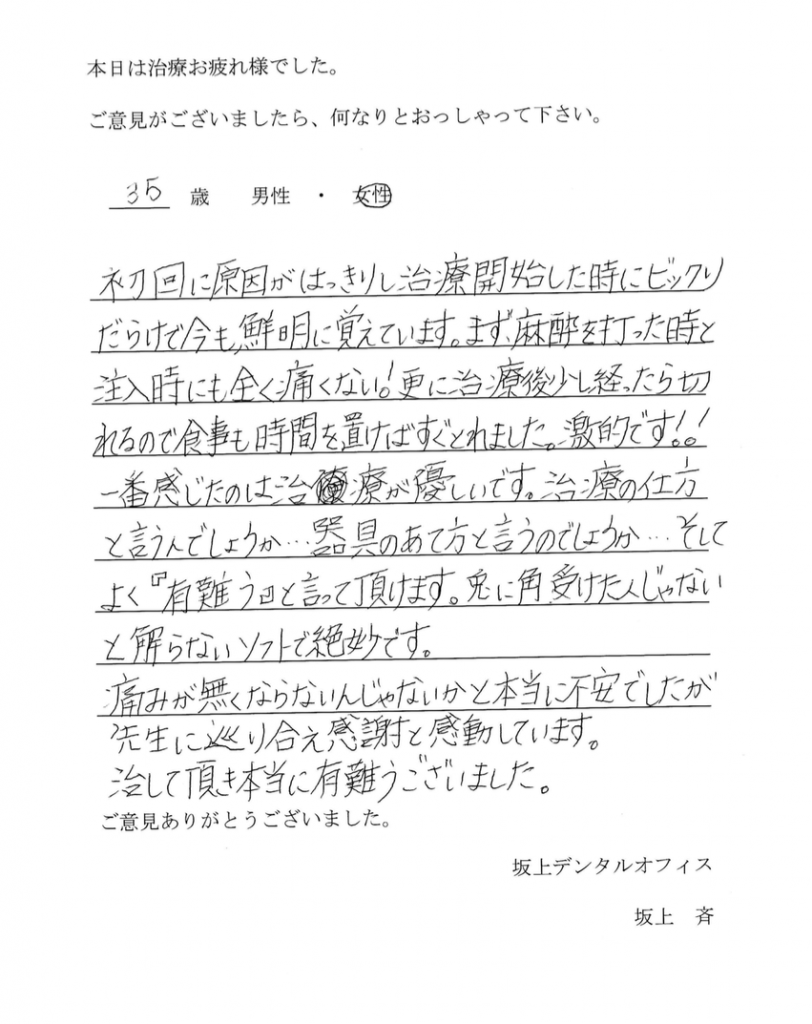 本日は治療お疲れ様でした。
ご意見がございましたら、何なりとおっしゃって下さい。
35 歳 男性 ・ 女性
初回に原因がはっきりし治療開始した時にビックリ
だらけで今も鮮明に覚えています。まず、麻酔を打った時と
注入時にも全く痛くない!更に治療後少し経ったら切
れるので食事も時間を置けばすぐとれました。激的です!!
一番感じたのは治療が優しいです。治療の仕方
と言うんでしょうか…器具のあて方と言うのでしょうか…そして
よく『有難う』と言って頂けます。兎に角、受けた人じゃない
と解らないソフトで絶妙です。
痛みが無くならないんじゃないかと本当に不安でしたが
先生に巡り合え感謝と感動しています。
治して頂き本当に有難うございました。
ご意見ありがとうございました。
坂上デンタルオフィス
坂上 斉